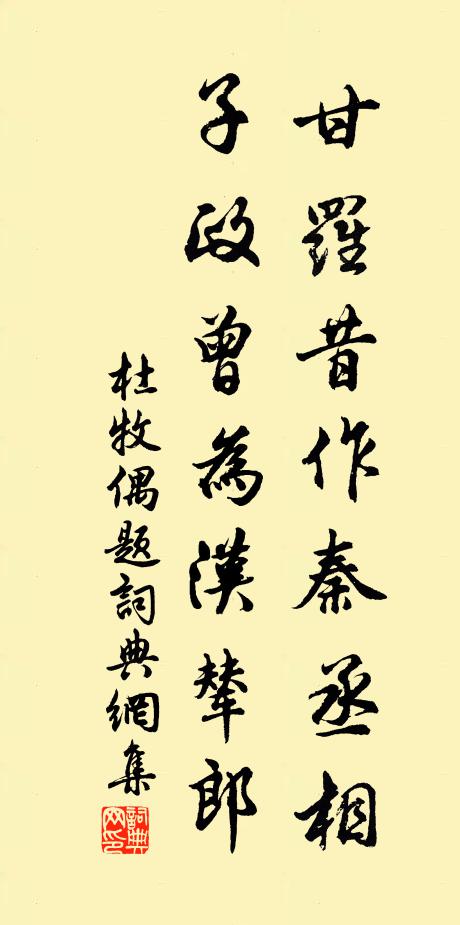 甘羅昔作秦丞相
子政曾為漢輦郎
杜牧偶题詞典網集
詞典網印